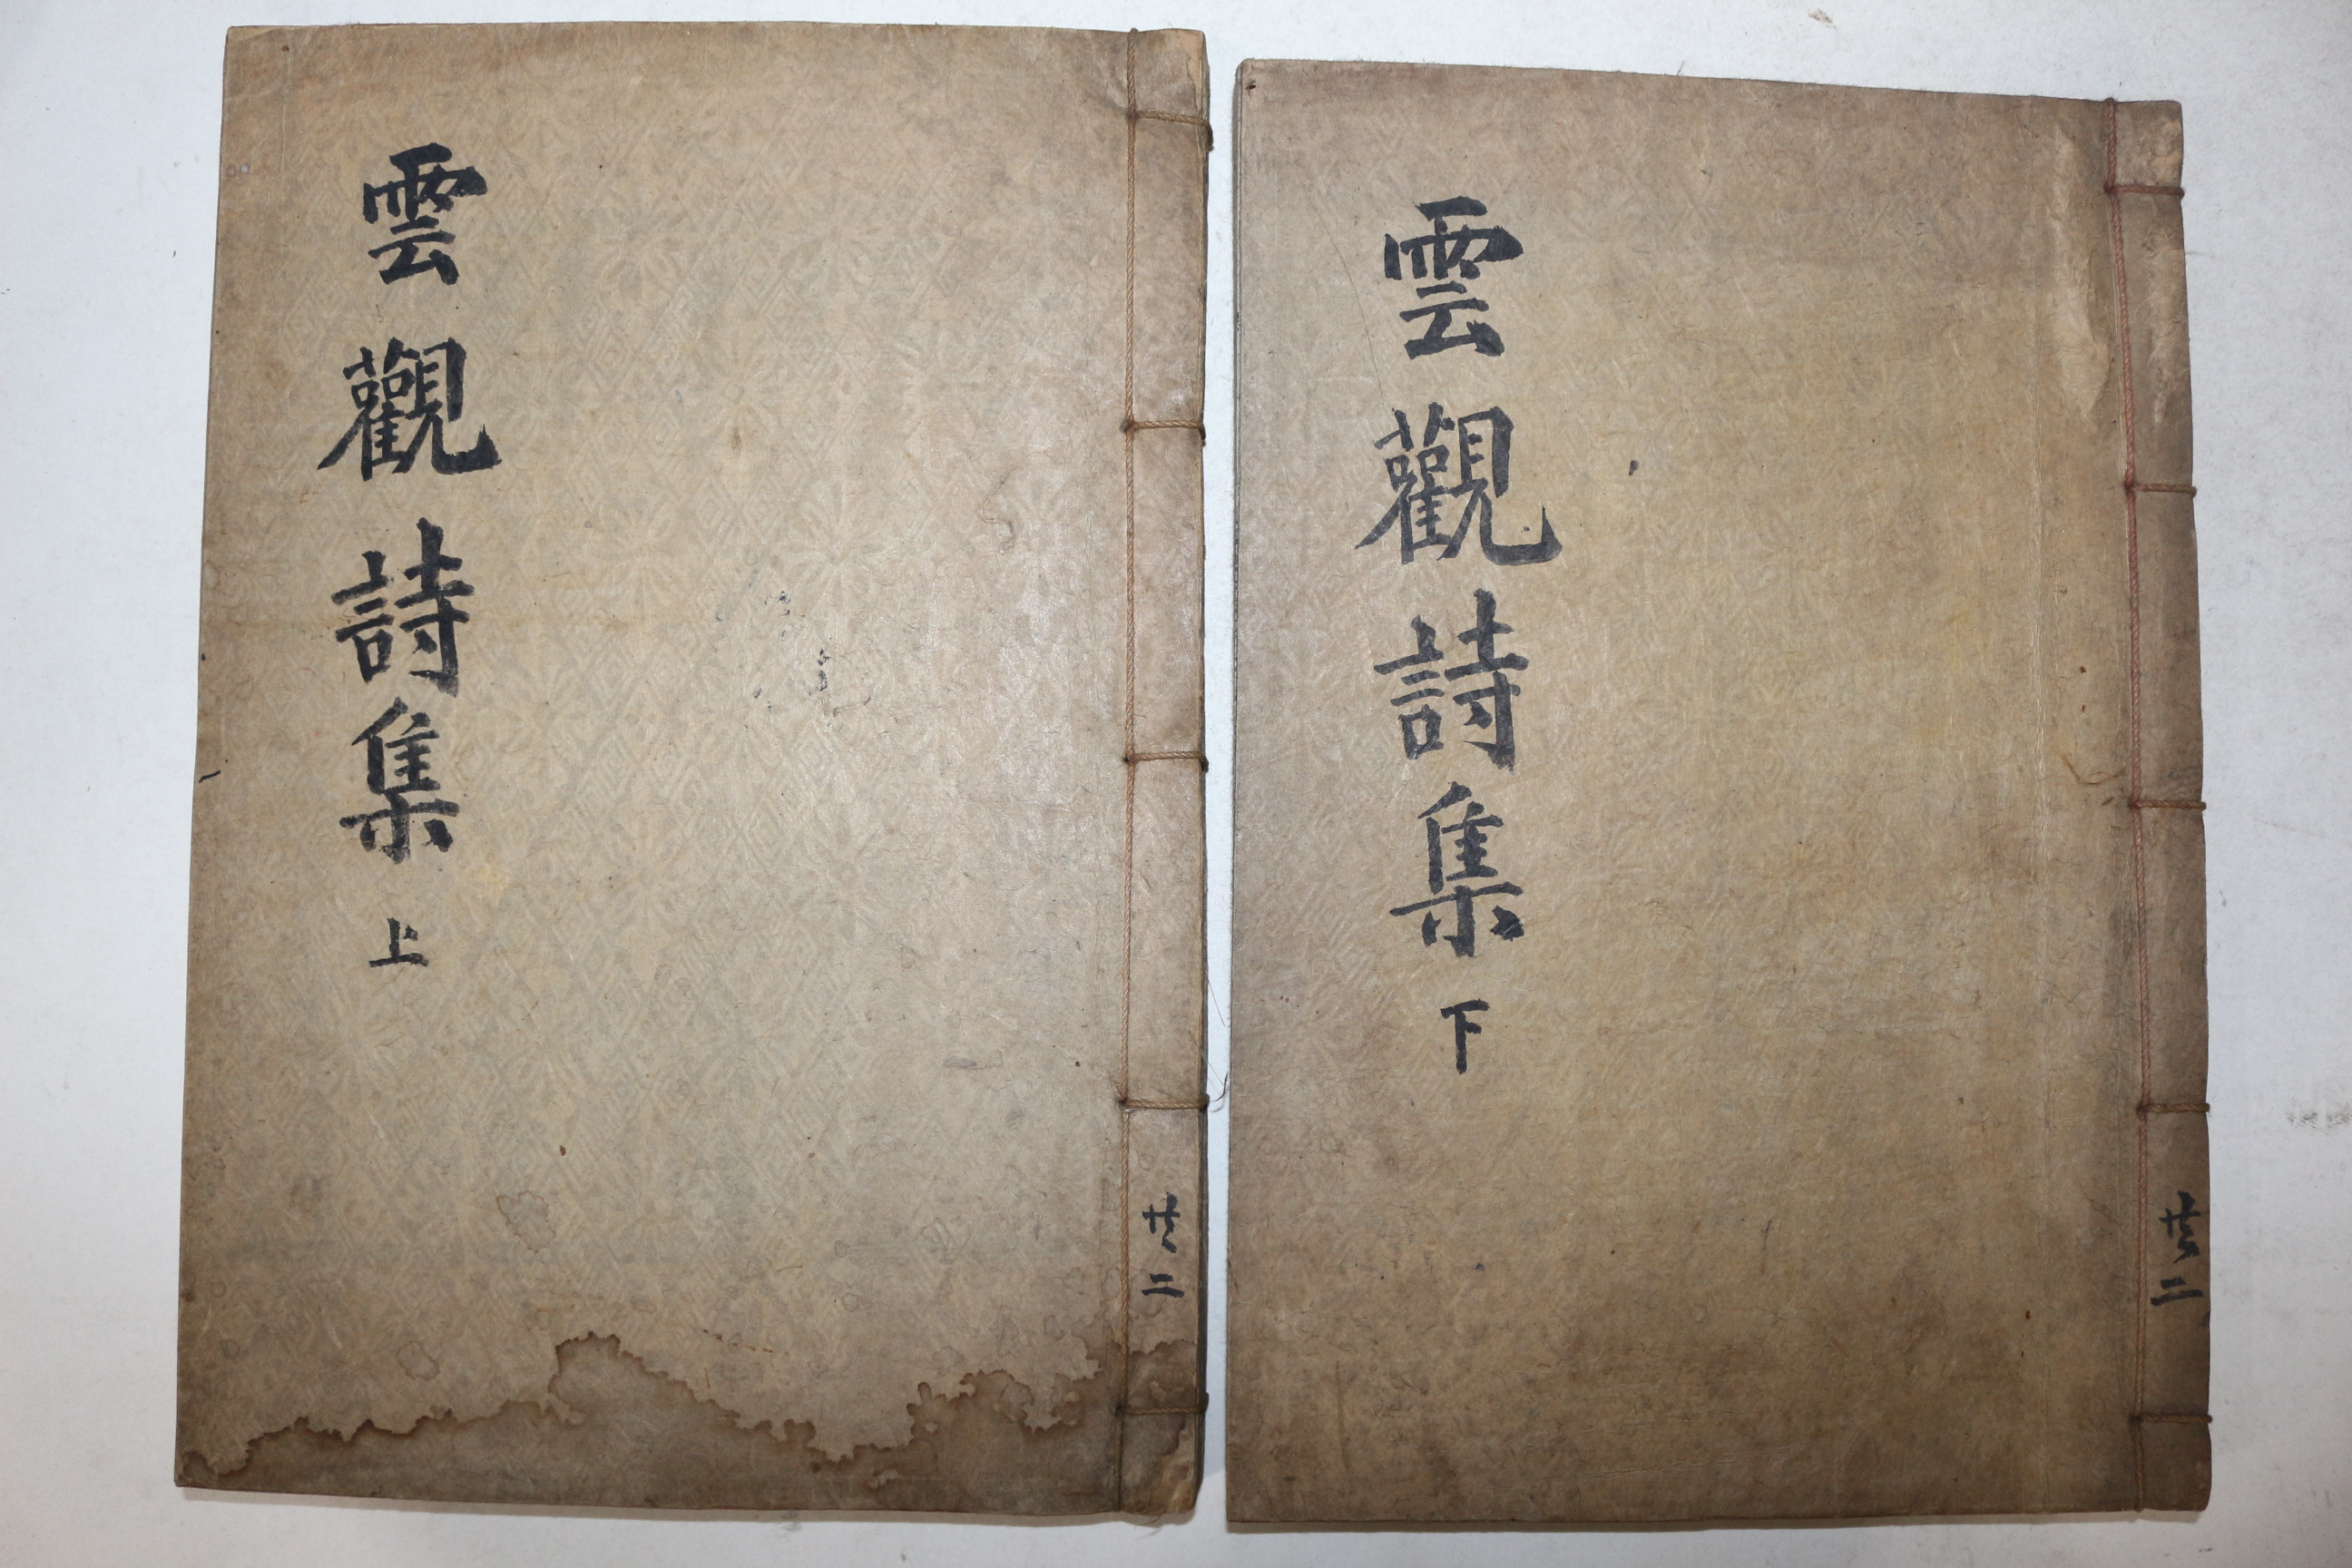 雲觀詩集 上
共二
雲觀詩集 下
共二